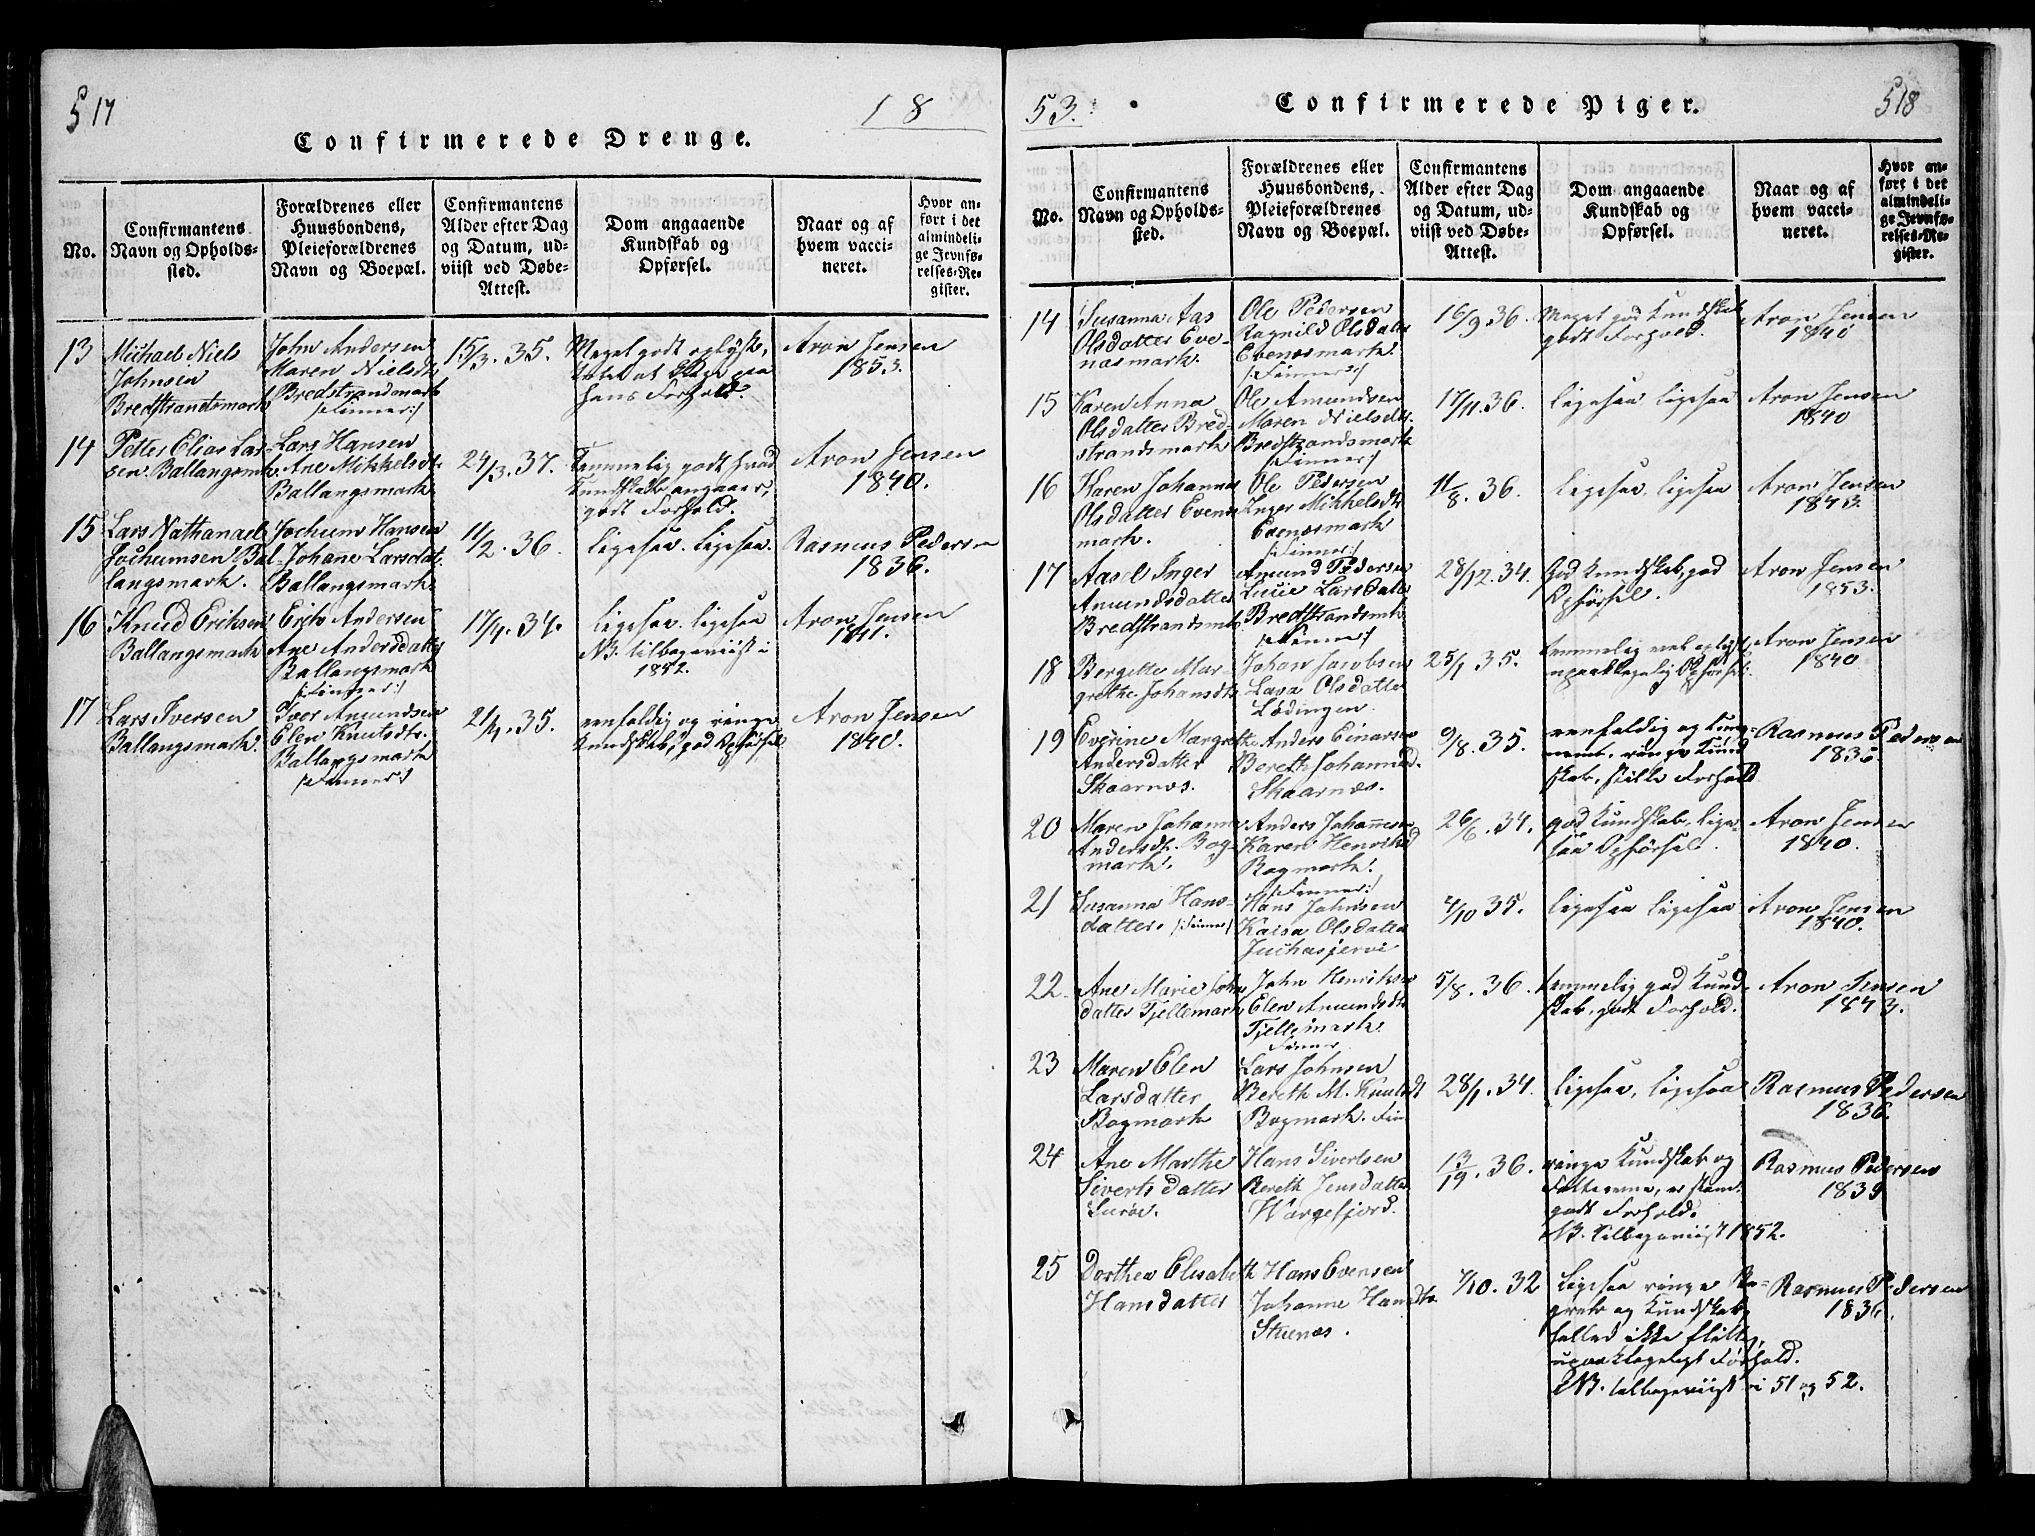 517
18
Confirmerede Drenge.
No.
Confirmantens
Navn og Opholds-
sted.
Forældrenes eller
Huusbondens,
Pleieforældrenes
Navn og Boepæl.
Confirmantens
Alder efter Dag
og Datum, ud-
viist ved Døbe-
Attest.
Dom angaaende
Kundskab og
Opførsel.
Naar og af
hvem vacci-
neret.
Hvor an-
ført i det
almindeli-
ge Jevnfø-
relses-Re-
gister.
13
Michael Niels
Johnsen
Bredstrandsmark
John Andersen
Maren Nielsdt.
Bredstrandsmark
/:Finner:/
15/3. 35.
Meget godt oplyst,
hans Forhold.
Aron Jensen
1853.
14
Petter Elias Lar-
sen. Ballangsmk.
Lars Hansen
Ane Mikkelsdt.
Ballangsmark
24/3. 37.
Temmelig godt hvad
Kundskab angaaer,
godt Forhold.
Aron Jensen
1840.
15
Lars Nathanael
Jochumsen Bal-
langsmark.
Jochum Hansen
Johane Larsdat.
Ballangsmark
11/2. 36.
ligesaa. ligesaa.
Rasmus Pedersen
1836.
16
Knud Eriksen
Ballangsmark
Erik Andersen
Ane Andersdatter
Ballangsmark
/:Finner:/
17/4. 34.
ligesaa. ligesaa
NB. tilbageviist i
1852.
Aron Jensen
1841.
17
Lars Iversen
Ballangsmark.
Iver Amundsen
Elen Knutsdt.
Ballangsmark
/:Finner:/
21/4. 35.
eenfoldig og ringe
Kundskab, god Opførsel
Aron Jensen
1840.
53.
Confirmerede Piger.
518
No.
Confirmantens
Navn og Opholds-
sted.
Forældrenes eller
Huusbondens,
Pleieforældrenes
Navn og Boepæl.
Confirmantens
Alder efter Dag
og Datum, ud-
viist ved Døbe-
Attest.
Dom angaaende
Kundskab og
Opførsel.
Naar og af
hvem vacci-
neret.
Hvor an-
ført i det
almindeli-
ge Jevnfø-
relses-Re-
gister.
14
Susanna Aas
Olsdatter Eve-
næsmark.
Ole Pedersen
Ragnild Olsdatter
Evenæsmark.
/:Finner:/
16/9. 36.
Meget god Kundskab
godt Forhold.
Aron Jensen
1840
15
Karen Anna
Olsdatter Bred-
strandsmark
Ole Amundsen
Maren Nielsdt.
Bredstrandsmark
/:Finner:/
17/11. 36.
ligesaa ligesaa
Aron Jensen
1840
16
Karen Johanna
Olsdatter Evenæs
mark.
Ole Pedersen
Inger Mikkelsdt
Evenæsmark
/:Finner:/
11/8. 36.
ligesaa. ligesaa
Aron Jensen
1843.
17
Aasel Inger
Amundsdatter
Bredstrandsmk
Amund Pedersen
Lucie Larsdatter
Bredstrandsmk
/:Finner:/
28/12. 34.
God Kundskab, god
Opførsel.
Aron Jensen
1853.
18
Bergitte Mar-
grethe Johansdt.
Johan Jacobsen
Lava Olsdatter
Lødingen.
25/1. 35.
temmelig vel oplyst,
upaaklagelig Opførsel.
Aron Jensen
1840
19
Everine Margrethe
Andersdatter
Skaarnæs.
Anders Einarsen
Bereth Johannesd.
Skaarnæs.
9/8. 35.
eenfoldig og
ringe Kund
skab, stille Forhold
Rasmus Pedersen
1835.
20
Maren Johanna
Andersdt. Bog-
mark.
Anders Johannesen
Karen Henriksd
Bogmark.
/:Finner:/
26/6. 34.
god Kundskab, lige-
saa Opførsel.
Aron Jensen
1840.
21
Susanna Hans-
datter. /:Finner/
Hans Johnsen
Kaisa Olsdatter
Juchasjervi
4/10 35.
ligesaa ligesaa
Aron Jensen
1840.
22.
Ane Marie John
datter Fjellemark
John Henriksen
Elen Amundsdt
Fjellemark.
Finner
5/8. 36.
temmelig god Kund
skab, godt Forhold.
Aron Jensen
1843.
23
Maren Elen
Larsdatter
Bogmark
Lars Johnsen
Bereth M. Knutsdt
Bogmark. Fin
28/1. 34.
ligesaa, ligesaa
Rasmus Pedersen
1836.
24
Ane Marthe
Siverts datter
Hans Sivertsen
Bereth Jensdatter
Wargefjord.
13/19. 36.
ringe Kundskab og
Fatteevne,
godt Forhold.
NB. tilbageviist 1852.
Rasmus Pedersen
1839
25
Dorthea Elisabeth
Hansdatter
Hans Evensen
Johanne Hansdt.
Stunæs.
7/10. 32
Ligesaa ringe Be-
greb og Kundskab,
heller ikke flittig,
upaaklageligt Forhold.
NB. tilbageviist i 51 og 52.
Rasmus Pedersen
1836.